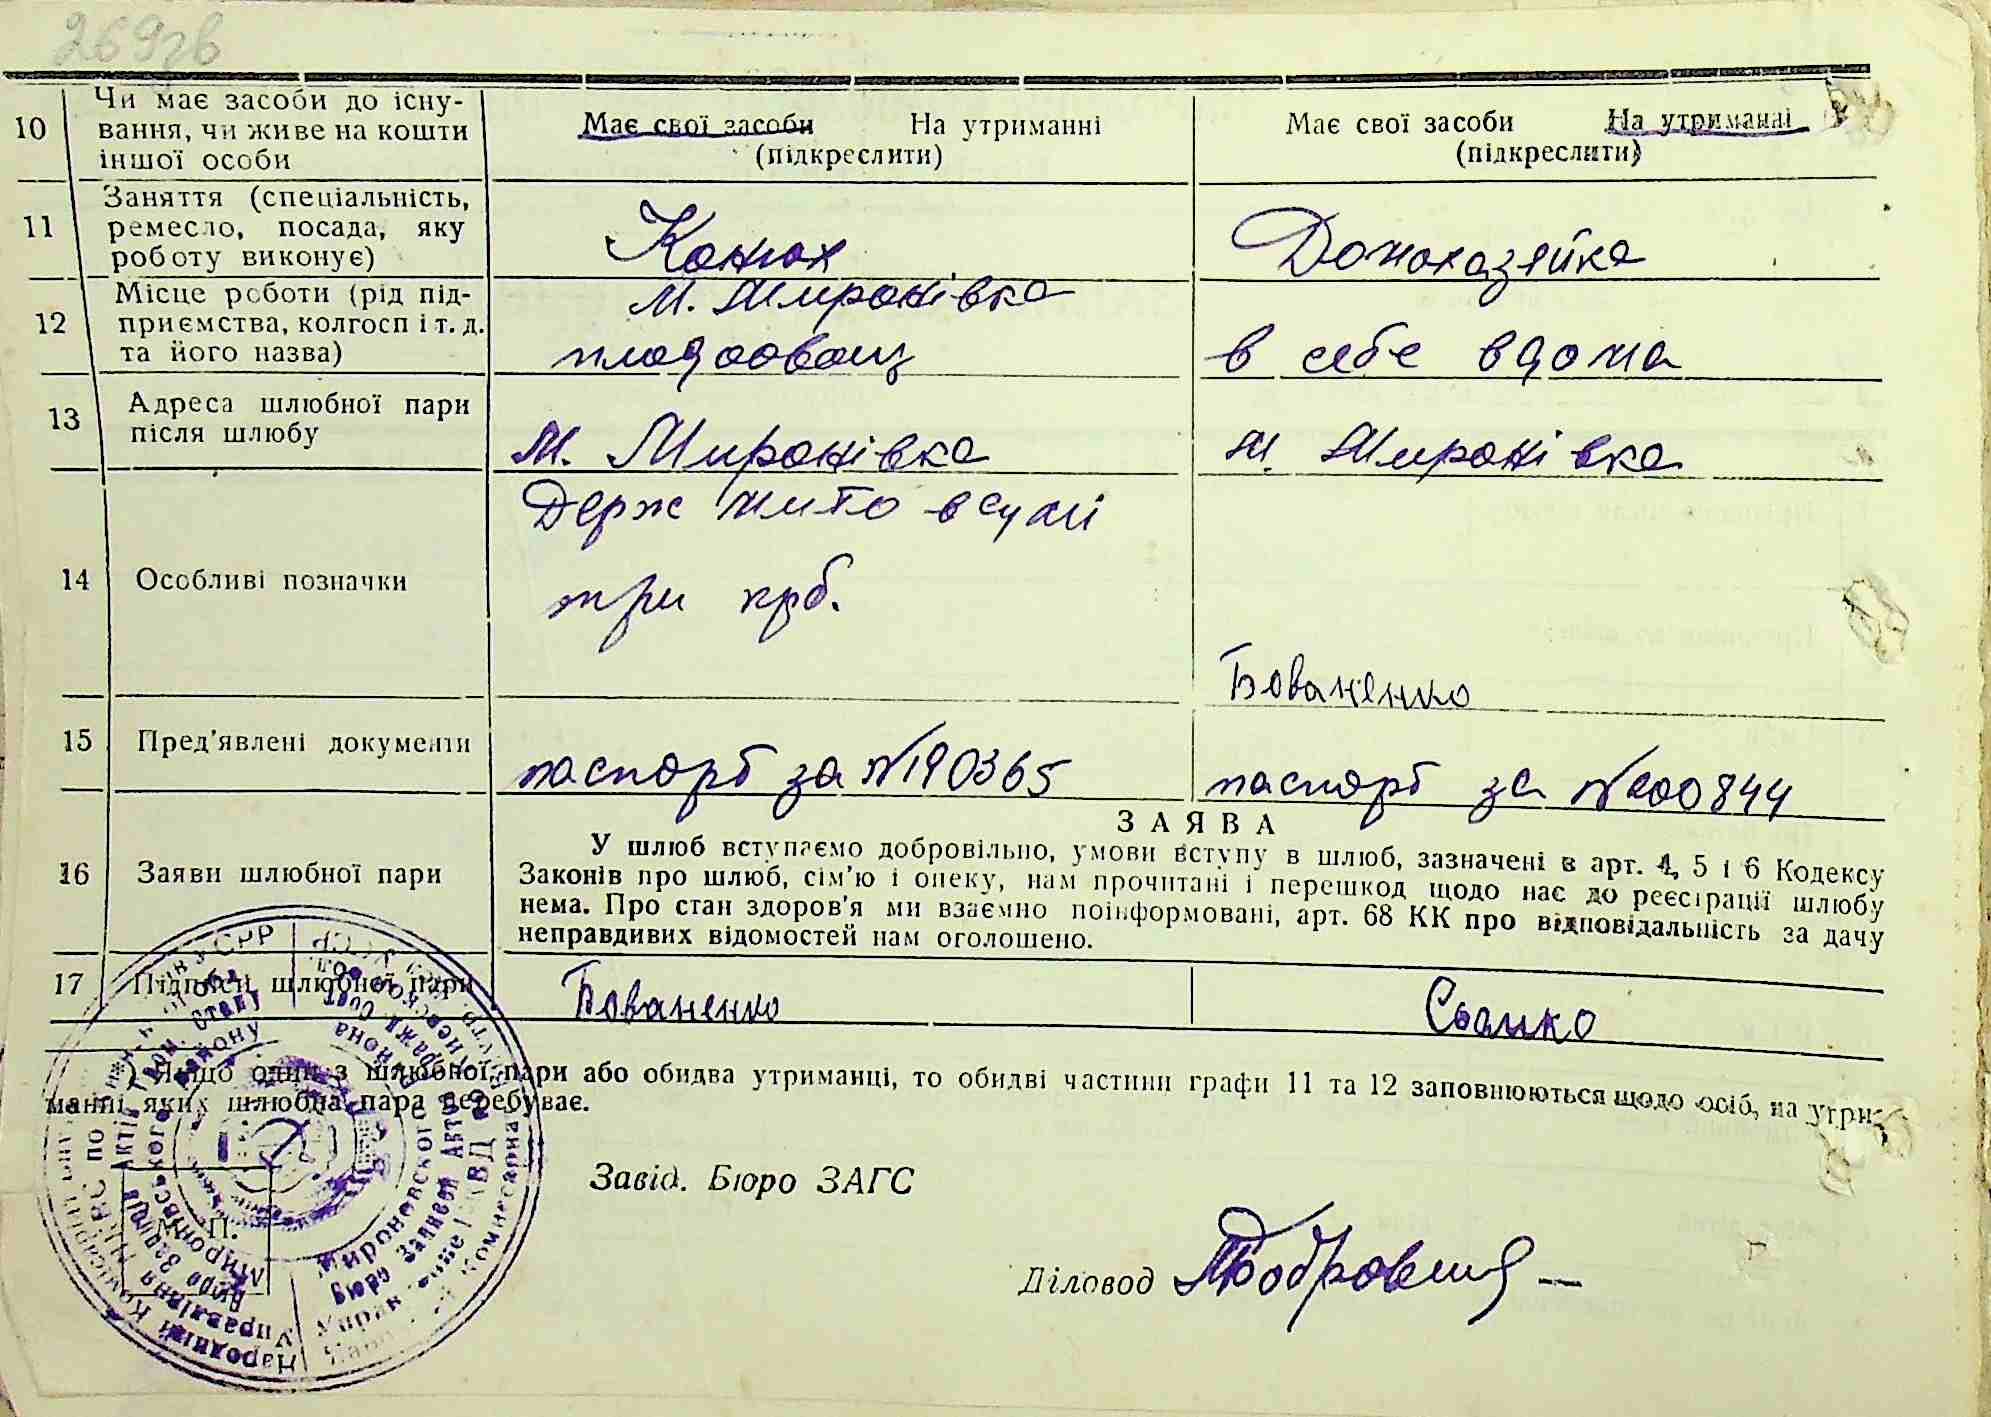 269зв
10
Чи має засоби до існу-
вання, чи живе на кошти
іншої особи
Має свої засоби На утриманні
(підкреслити)
Має свої засоби На утриманні
(підкреслити)
11
Заняття (спеціальність,
ремесло, посада, яку
роботу виконує)
Конюх
Домохазяйка
12
Місце роботи (рід під-
приємства, колгосп і т. д.
та його назва)
М. Миронівка
в себе вдома
13
Адреса шлюбної пари
після шлюбу
М. Миронівка
М. Миронівка
14
Особливі позначки
Держ мито в сумі
три крб.
Бованенко
15
Пред'явлені документи
паспорт за №190365
паспорт за №200844
16
Заяви шлюбної пари
ЗАЯВА
У шлюб вступаємо добровільно, умови вступу в шлюб, зазначені в арт. 4, 5 і 6 Кодексу
Законів про шлюб, сім'ю і опеку, нам прочитані і перешкод щодо нас до реєстрації шлюбу
нема. Про стан здоров'я ми взаємно поінформовані, арт. 68 КК про відповідальність за дачу
неправдивих відомостей нам оголошено.
17
Підписи шлюбної пари
Бованенко
) Якщо один з шлюбної пари або обидва утриманці, то обидві частини графи 11 та 12 заповнюються щодо осіб, на утри-
манні яких шлюбна пара перебуває.
Завід. Бюро ЗАГС
М. П.
Діловод
Народній Комісаріат
Управління
Миронівського району
Мироновского района
Бюро Записей Актов